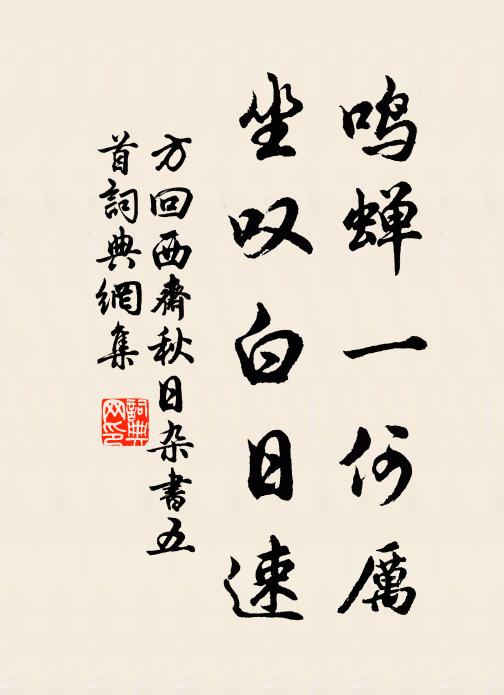 鸣蝉一何厲
坐叹白日速
方回西齋秋日杂書五
首詞典網集
詞典
网印